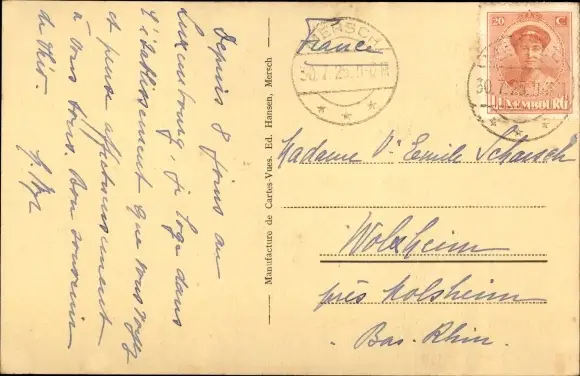 Depuis 8 jours au
Luxembourg, je loge dans
l'établissement que vous voyez
et pense affectueusement
à vous tous. Bon souvenir
de
Manufacture de Cartes-Vues. Ed. Hansen, Mersch
France
MERSCH
30.7.25
20 C
LUXEMBOURG
30.7.25
Madame Vᵉ Emile Scharsch
Wolxheim
près Molsheim
Bas-Rhin.